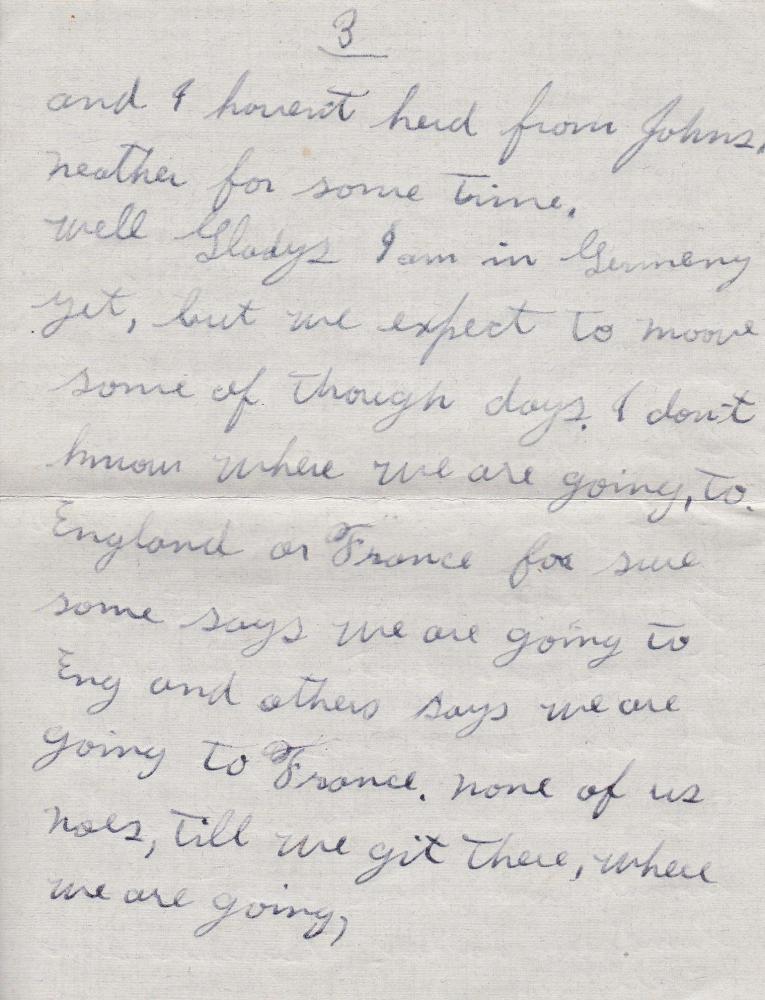 3
and I havent herd from Johns,
neather for some time.
well Gladys I am in Germeny
yet, but we expect to moove
some of though days. I don't
know where we are going, to.
England or France for sure
some says we are going to
Eng and others says we are
going to France. none of us
noes, till we git there, where
we are going,